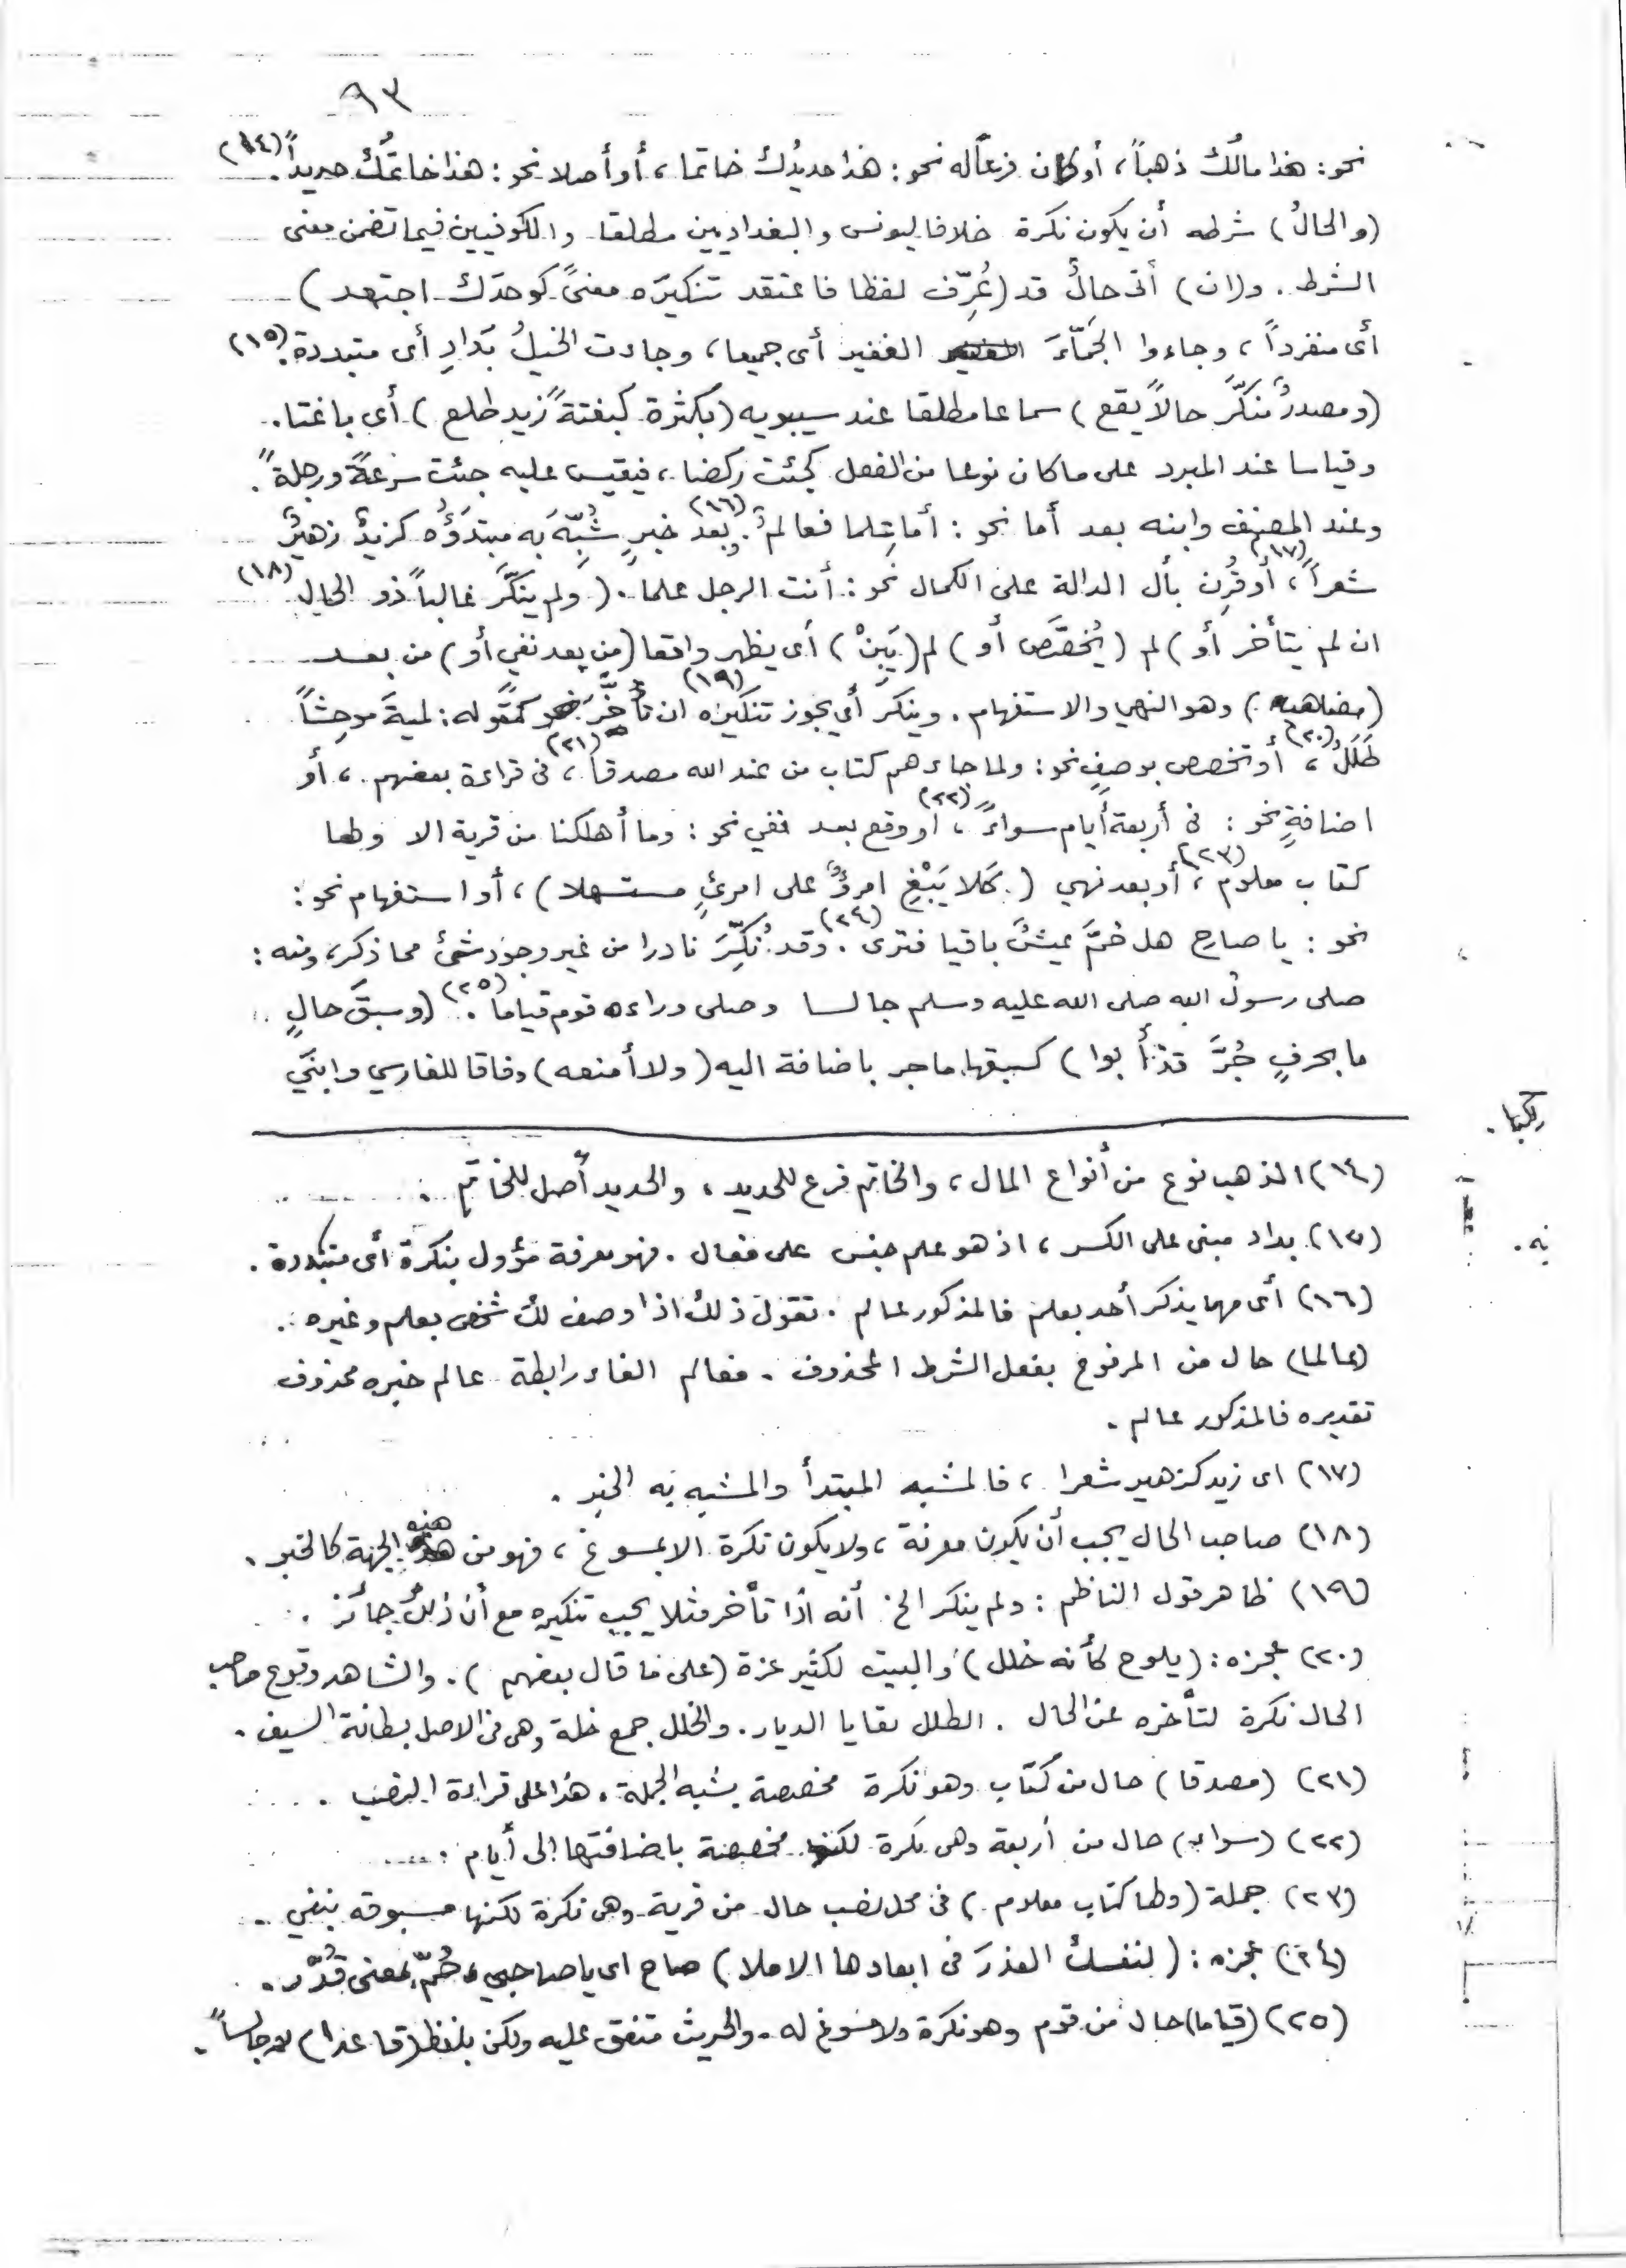 ٩٣
نحو: هذا مالُك ذهباً، أو كان فرعاً له نحو: هذا حديدُك خاتما، أو أصلا نحو: هذا خاتمُك حديداً. (١٤)
(والحالُ) شرطه أن يكون نكرة خلافا ليونس والبغداديين مطلقا والكوفيين فيما تضمن معنى
الشرط. و(ان) أتى حالٌ قد (عُرِّف لفظا فاعتقد تنكيرَه معنىً كوحدَك اجتهد)
أى منفرداً، وجاءوا الجَمّاءَ الغفير أى جميعا، وجاءت الخيلُ بَدادِ أى متبددة. (١٥)
(ومصدرٌ منكّرٌ حالاً يقع) سماعا مطلقا عند سيبويه (بكثرة كبغتةً زيد طلع) أى باغتا.
وقياسا عند المبرد على ما كان نوعا من الفعل كجئت ركضا، فيقيس عليه جئت سرعةً ورجلةً.
وعند المصنف وابنه بعد أما نحو: أما علما فعالمٌ. (١٦) وبعد خبرٍ شُبِّهَ به مبتدَؤُه كزيدٌ زهيرٌ
شعراً (١٧)، أو قُرِن بأل الدالة على الكمال نحو: أنت الرجل علما. (ولم ينكَّر غالباً ذو الحال (١٨)
ان لم يتأخر أو) لم (يُخصَّص أو) لم (يَبِنْ) أى يظهر واقعا (من بعد نفي أو) من بعد
(مضاهيه) وهو النهي والاستفهام. وينكر أي يجوز تنكيره (١٩) ان تأخَّرَ كقوله: لميةَ موحِشاً
طَلَلُ (٢٠)، أو تخصص بوصفٍ نحو: ولما جاءهم كتاب من عند الله مصدقاً (٢١)، فى قراءة بعضهم، أو
اضافةٍ نحو: فى أربعة أيام سواءً (٢٢)، أو وقع بعد نفي نحو: وما أهلكنا من قرية الا ولها
كتاب معلوم (٢٣)، أو بعد نهي (كلا يَبْغِ امرؤٌ على امرئٍ مستهلا)، أو استفهام نحو:
نحو: يا صاحِ هل حُمَّ عيشٌ باقيا فترى (٢٤). وقد نُكِّرَ نادرا من غير وجود شئ مما ذكر، ومنه:
صلى رسولُ الله صلى الله عليه وسلم جالسا وصلى وراءه قوم قياماً (٢٥). (وسبقَ حالٍ
ما بحرفٍ جُرَّ قد أَبوا) كسبقها ما جر باضافة اليه (ولا أمنعه) وفاقا للفارسي وابنَي
(١٤) الذهب نوع من أنواع المال، والخاتم فرع للحديد، والحديد أصل للخاتم.
(١٥) بداد مبنى على الكسر، اذ هو علم جنس على فعال. فهو معرفة مؤول بنكرة أى متبددة.
(١٦) أى مهما يذكر أحد بعلم فالمذكور عالم. تقول ذلك اذا وصف لك شخص بعلم وغيره.
(عالما) حال من المرفوع بفعل الشرط المحذوف. فعالم الفاء رابطة عالم خبره محذوف
تقديره فالمذكور عالم.
(١٧) اى زيد كزهير شعرا، فالمشبه المبتدأ والمشبه به الخبر.
(١٨) صاحب الحال يجب أن يكون معرفة، ولا يكون نكرة الا بمسوغ، فهو من هذه الجهة كالخبر.
(١٩) ظاهر قول الناظم: ولم ينكر الخ أنه اذا تأخر مثلا يجب تنكيره مع أن ذلك جائز.
(٢٠) عجزه: (يلوح كأنه خلل) والبيت لكثير عزة (على ما قال بعضهم). والشاهد وقوع صاحب
الحال نكرة لتأخره عن الحال. الطلل بقايا الديار. والخلل جمع خلة وهى فى الاصل بطانة السيف.
(٢١) (مصدقا) حال من كتاب وهو نكرة مخصصة بشبه الجملة. هذا على قراءة النصب.
(٢٢) (سواء) حال من أربعة وهى نكرة لكنها مخصصة باضافتها إلى أيام.
(٢٣) جملة (ولها كتاب معلوم) فى محل نصب حال من قرية وهى نكرة لكنها مسبوقة بنفي.
(٢٤) عجزه: (لنفسك العذرَ فى ابعادها الاملا) صاح اى يا صاحبي، حُمّ بمعنى قُدّر.
(٢٥) (قياما) حال من قوم وهو نكرة ولا مسوغ له. والحديث متفق عليه ولكن بلفظ (قاعدا) لا جالساً.
ركبا.
به.